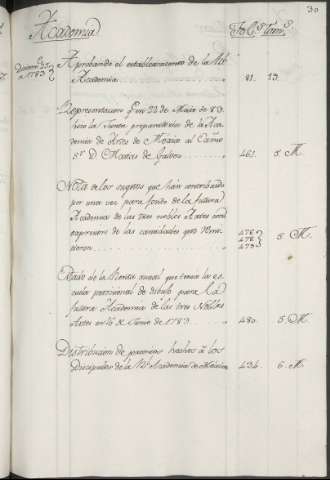 30
Academia Fo. Cs. Toms.
Diciemre. 25
a 1783
Aprobando el establecimiento de la Rl.
Academia 81. 13.
Representacion qe. en 22 de Maio de 83.
hizo la Junta preparatoria de la Aca
demia de Artes de Mexico al Exmo
Sr. D. Matias de Galvez 461. 5 M.
Nota de los sugetos que han contribuido
por una vez para fondo de la futura
Academia de las tres nobles Artes con
expresion de las cantidades que
476
478
479 5 M.
Estado de la Renta anual que tenia la es
cuela provicional de dibujo para la
futura Academia de las tres Nobles
Artes en de Junio de 1783 480. 5 M.
Distribucion de premios hechos à los
Discipulos de la Rl. Academia de Mexico 434. 6 M.